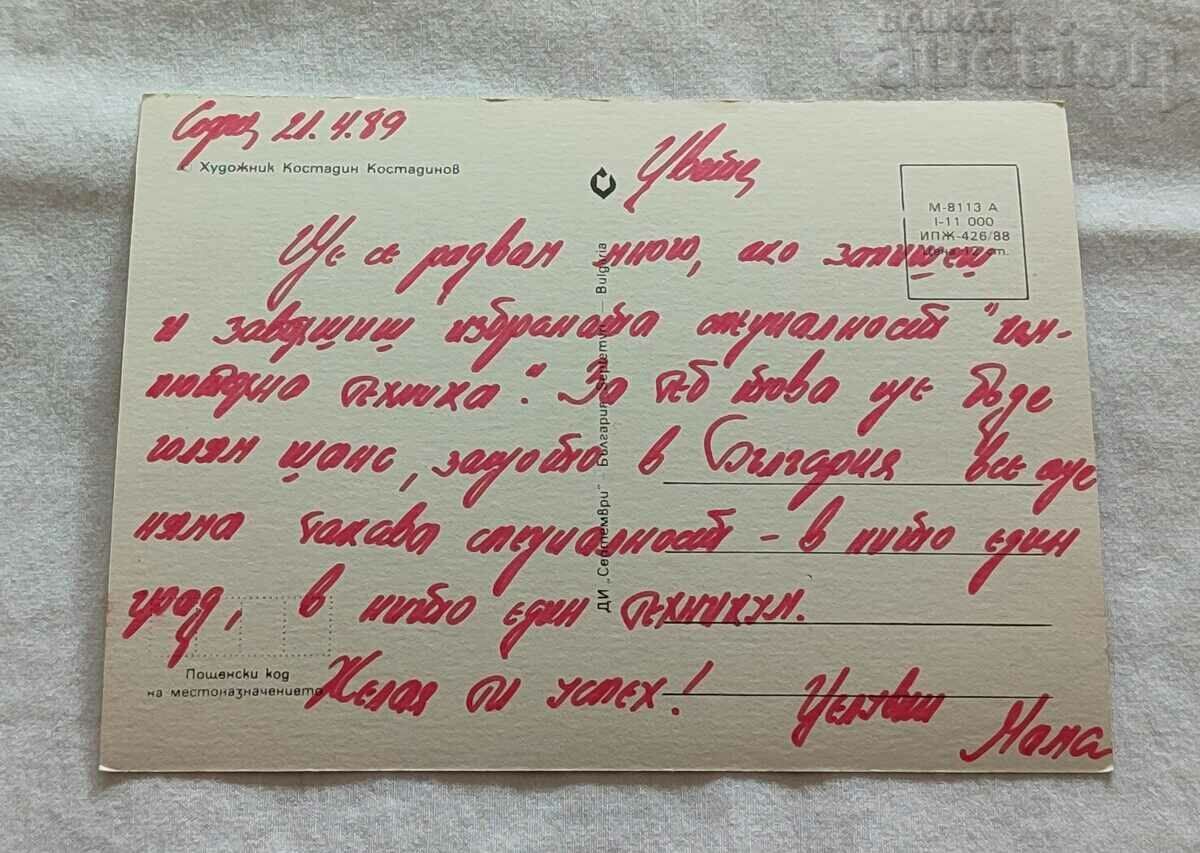 БАЛКАН
аукціони
София 21.4.89
© Художник Костадин Костадинов
Цвети,
М-8113 А
I-11 000
ИПЖ-426/88
Цена 12 ст.
Ще се радвам много, ако запишеш
и завършиш избраната специалност
техника". За теб това ще бъде
голям шанс, защото в България все още
няма такава специалност - в нито един
град, в нито един техникум.
Желая ти успех! Целувки
Мама
ДИ „Септември" — България Septemvri — Bulgaria
Пощенски код
на местоназначението